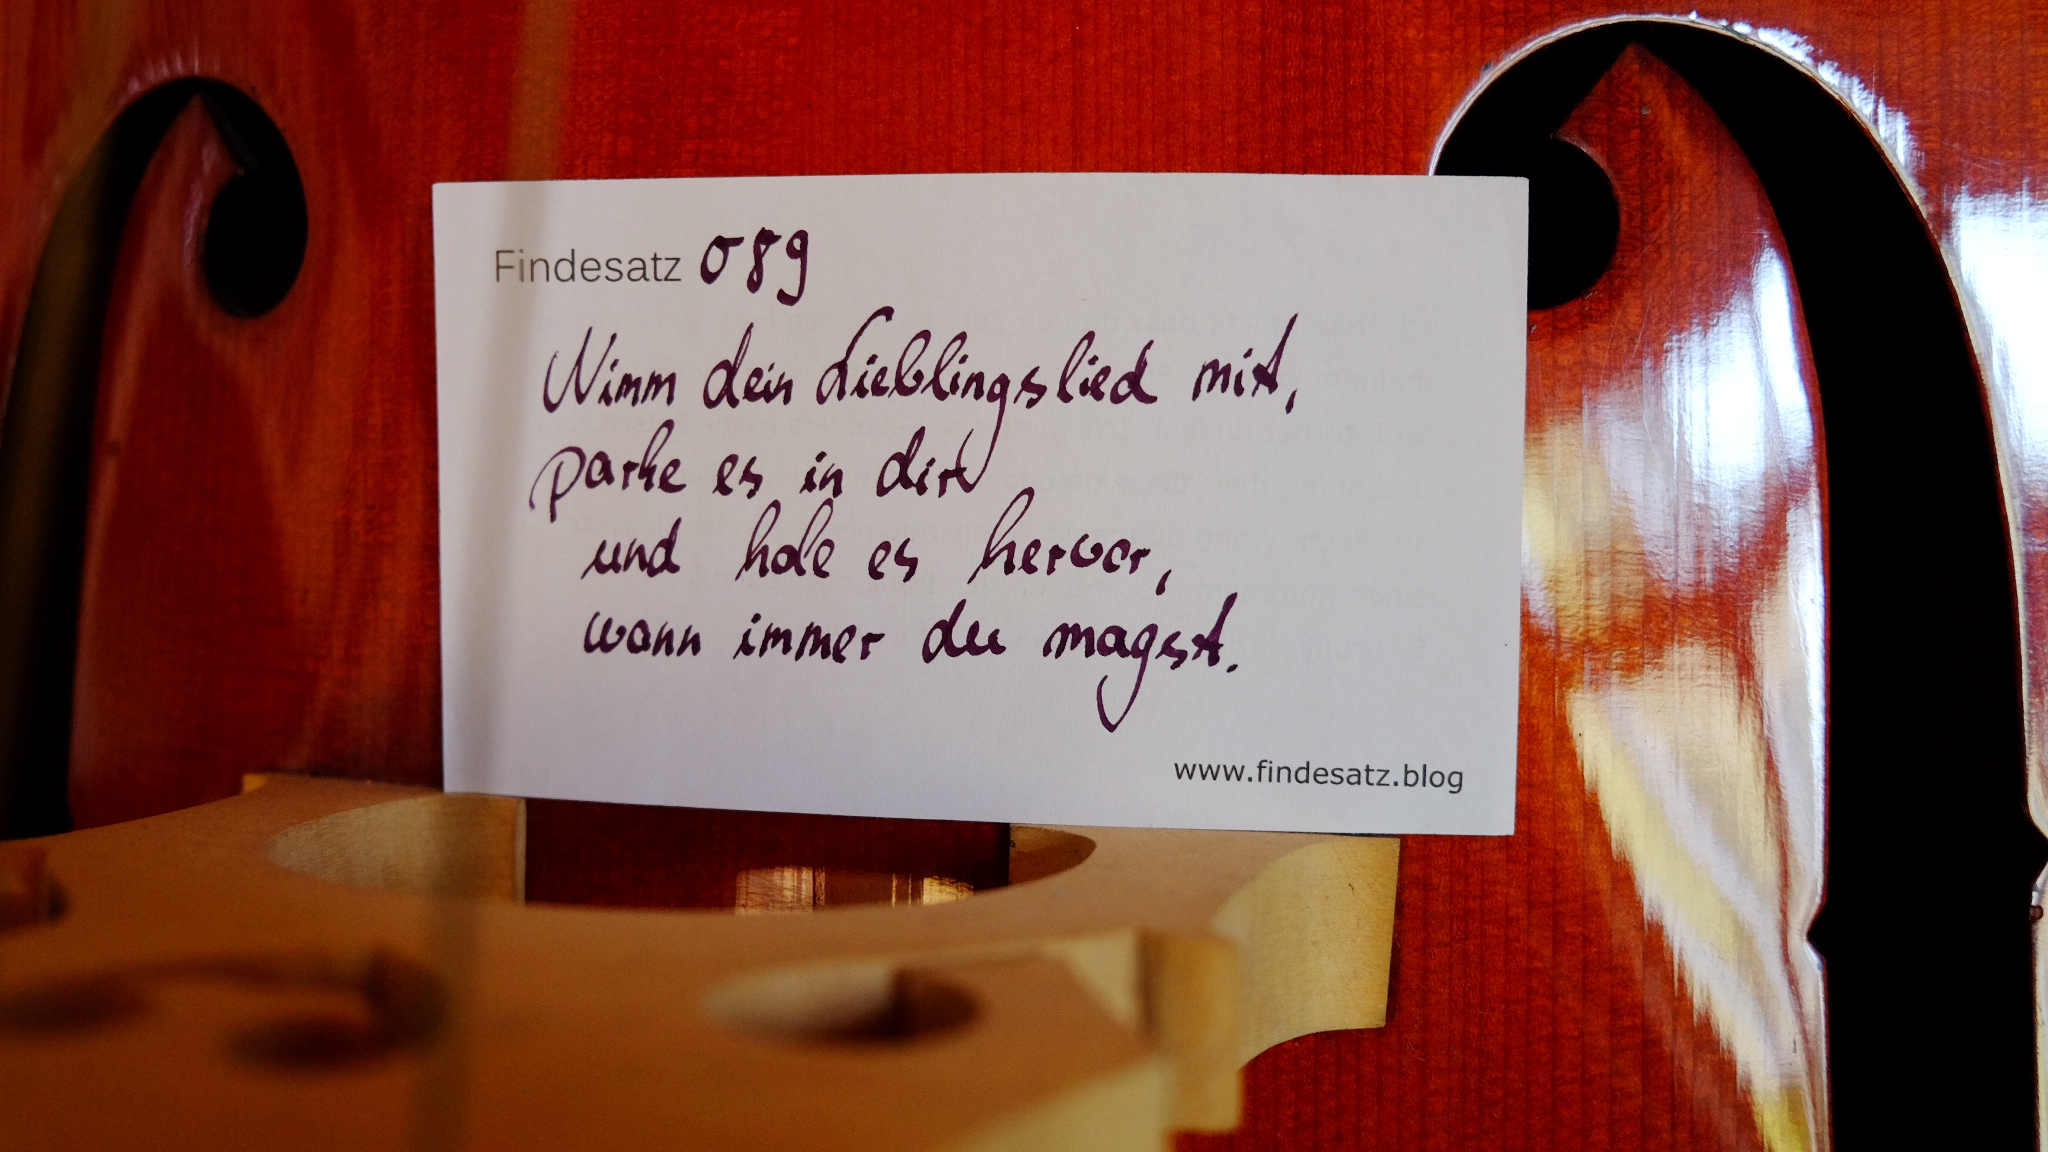 Findesatz 089
Nimm dein Lieblingslied mit,
parke es in dir
und hole es hervor,
wann immer du magst.
www.findesatz.blog